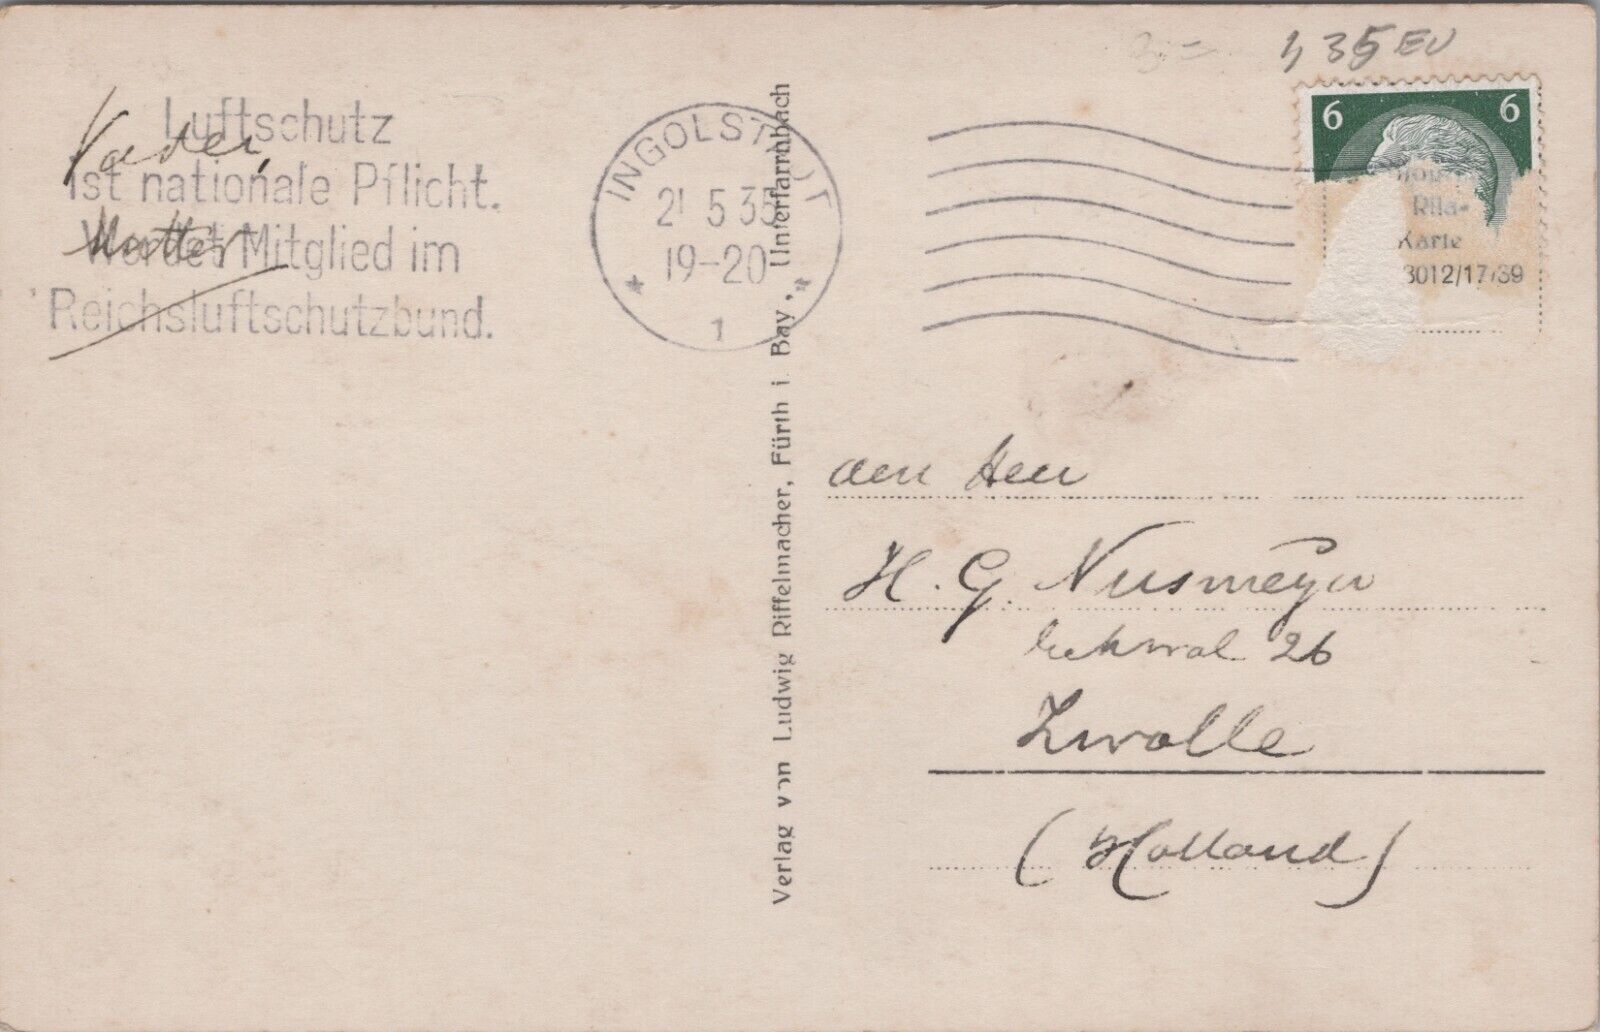 435 EU
Luftschutz
ist nationale Pflicht.
Werdet Mitglied im
Reichsluftschutzbund.
Vader,
Motter
INGOLSTADT
21 5 35
19-20
1
6 6
Rila-
Karte
3012/17/39
den Heer
H. G. Nusmeyer
26
Zwolle
(Holland)
Verlag von Ludwig Riffelmacher, Fürth i. Bay., Unterfarrnbach